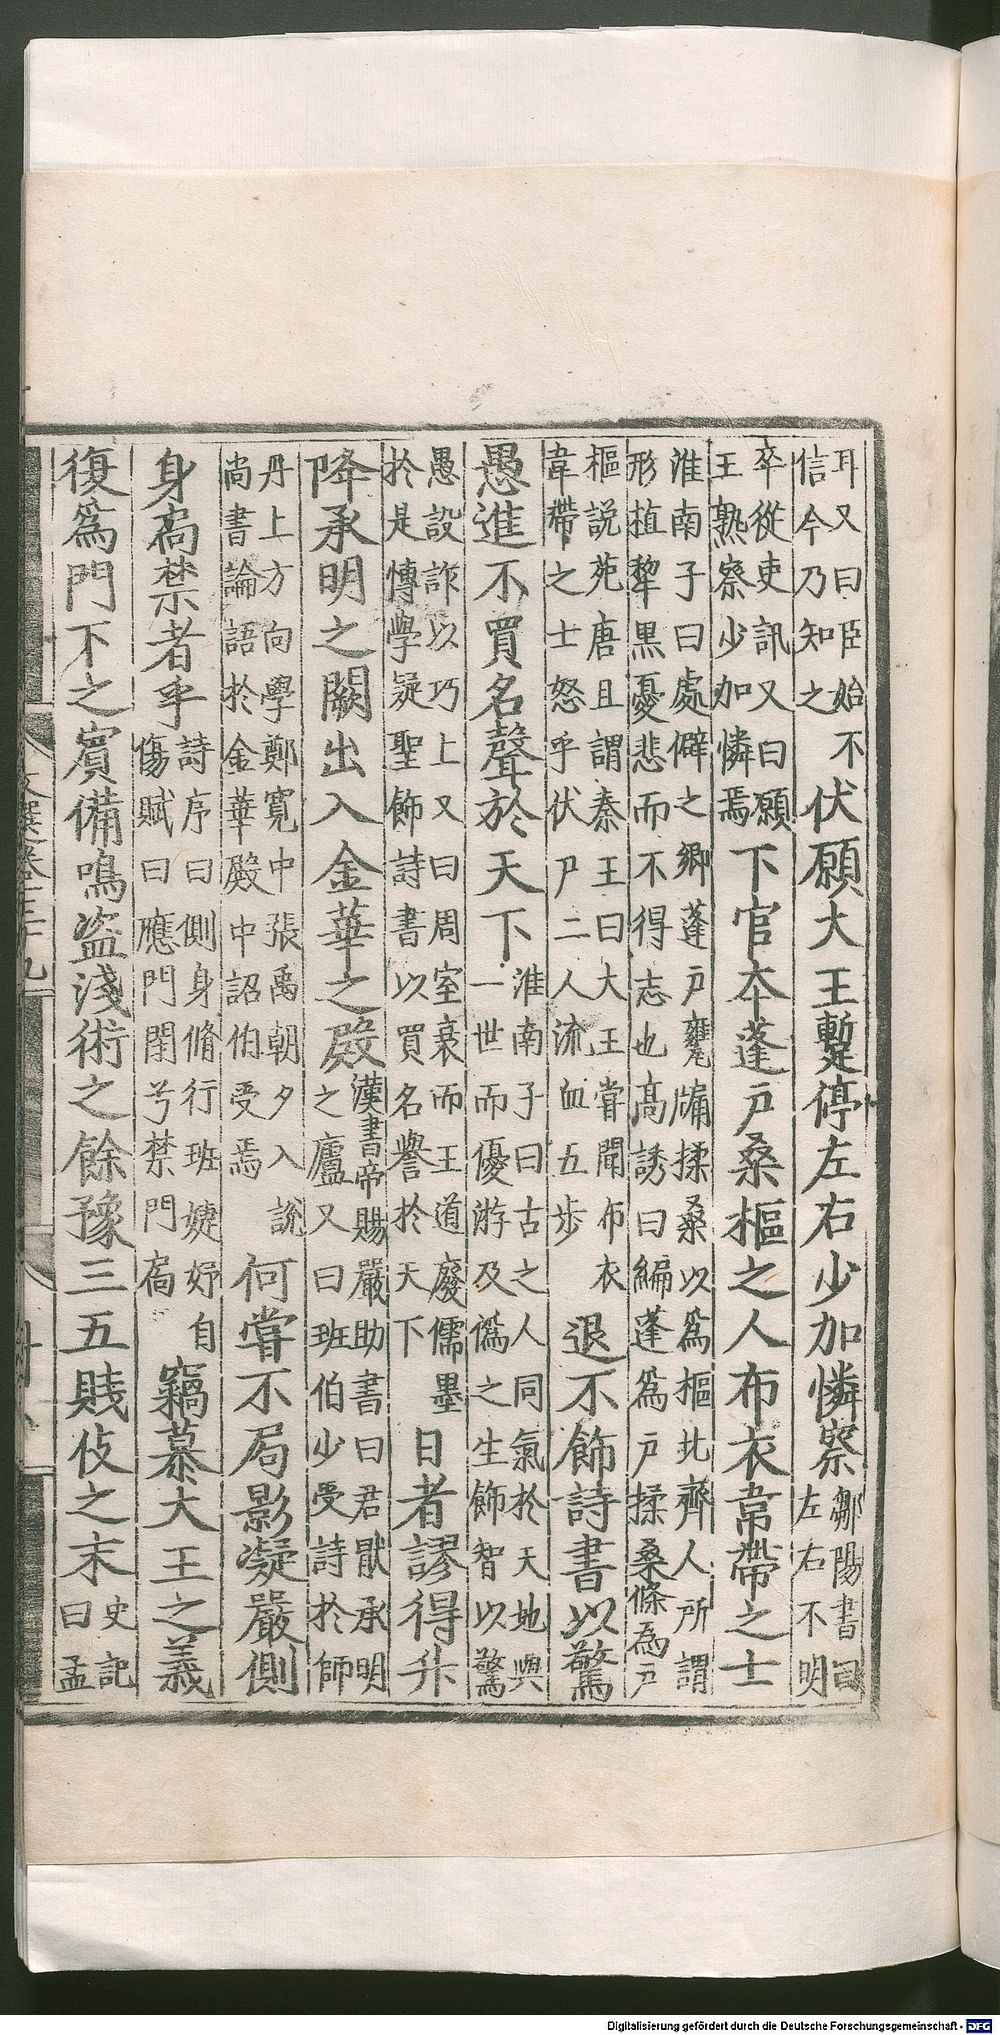 耳又曰臣始不
信今乃知之
伏願大王蹔停左右少加憐察
鄒陽書曰
左右不明
卒從吏訊又曰願
王熟察少加憐焉
下官夲蓬戶桑樞之人布衣韋帶之士
淮南子曰處僻之鄉蓬戶甕牖揉桑以爲樞此齊人所謂
形植犂黒憂悲而不得志也高誘曰編蓬爲戶揉桑條為戶
樞說苑唐且謂秦王曰大王嘗聞布衣
韋帶之士怒乎伏尸二人流血五步
退不飾詩書以驚
愚進不買名聲於天下
淮南子曰古之人同氣於天地與
一世而優游及僞之生飾智以驚
愚設詐以巧上又曰周室衰而王道廢儒墨
於是博學疑聖飾詩書以買名譽於天下
日者謬得升
降承明之闕出入金華之殿
漢書帝賜嚴助書曰君猒承明
之廬又曰班伯少受詩於師
丹上方向學鄭寬中張禹朝夕入說
尚書論語於金華殿中詔伯受焉
何甞不局影凝嚴側
身扃禁者乎
詩序曰側身脩行班婕妤自
傷賦曰應門閉兮禁門扃
竊慕大王之義
復爲門下之賓備鳴盜淺術之餘豫三五賤伎之末
史記
曰孟
文選卷三十九
Digitalisierung gefördert durch die Deutsche Forschungsgemeinschaft - DFG